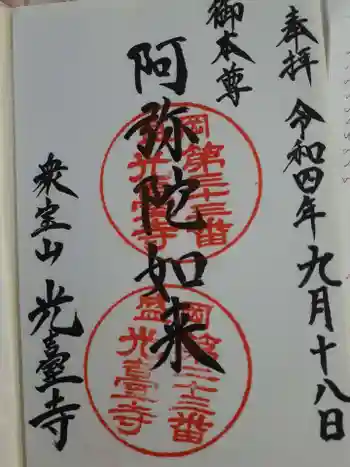 奉拝 令和四年九月十八日
御本尊
阿弥陀如来
衆宝山 光臺寺
盛岡第三十三番
光臺寺